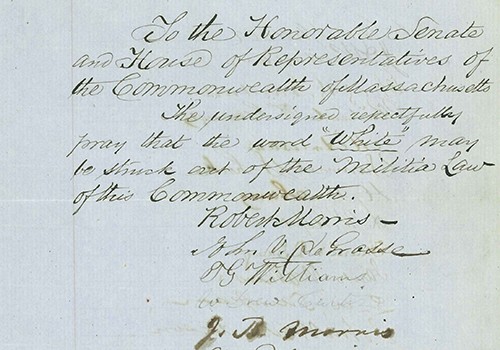 To the Honorable Senate
and House of Representatives of
the Commonwealth of Massachusetts
The undersigned respectfully
pray that the word "White" may
be struck out of the Militia Law
of this Commonwealth.
Robert Morris —
John V. DeGrasse
Williams
J. B. Morris